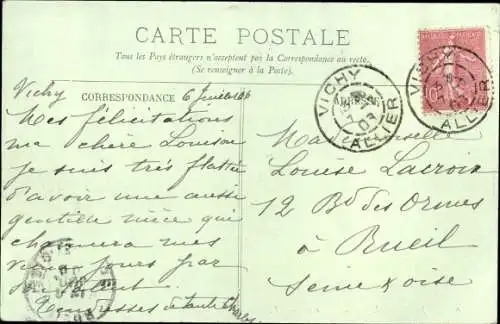 CARTE POSTALE
Tous les Pays étrangers n'acceptent pas la Correspondance au recto.
(Se renseigner à la Poste).
CORRESPONDANCE
Vichy 6 Juillet
Mes félicitations
ma chère Louison
je suis très flattée
d'avoir une aussi
gentille nièce qui
charmera mes
vieux jours par
son talent.
Tendresses de tante Charles
Mademoiselle
Louise Lacroix
12 Bd des Ormes
à Rueil
Seine & Oise
VICHY
ALLIER
VICHY
ALLIER